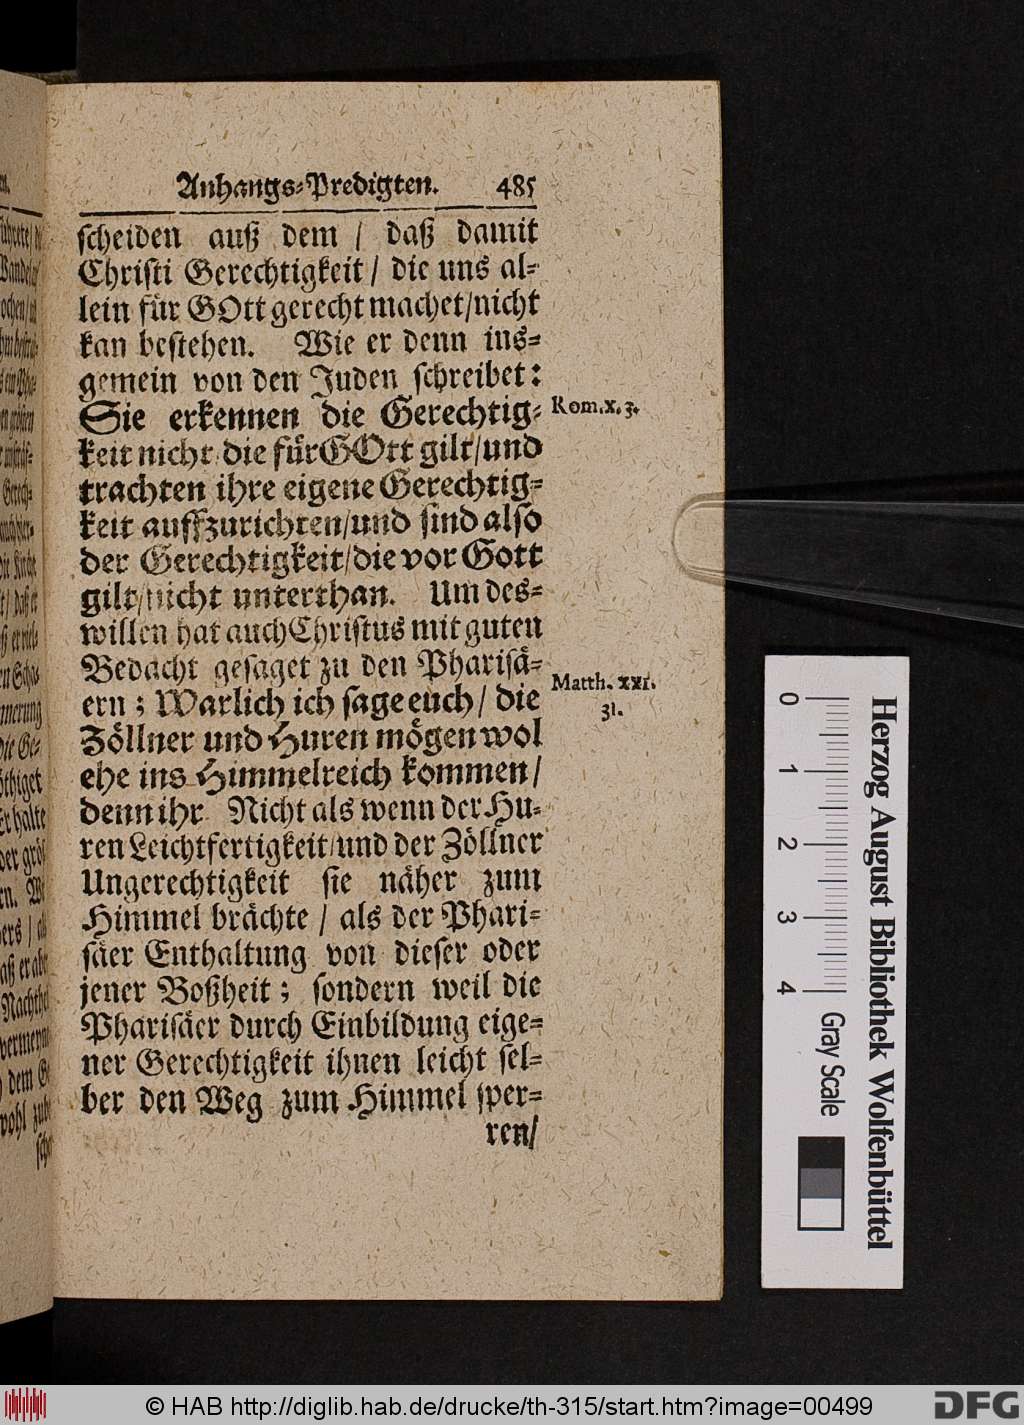 Anhangs-Predigten. 485
scheiden auß dem / daß damit
Christi Gerechtigkeit / die uns al-
lein für GOtt gerecht machet/nicht
kan bestehen. Wie er denn ins-
gemein von den Juden schreibet:
Sie erkennen die Gerechtig-
keit nicht die für GOtt gilt/und
trachten ihre eigene Gerechtig-
keit auffzurichten/und sind also
der Gerechtigkeit/die vor Gott
gilt/nicht unterthan. Um des-
willen hat auch Christus mit guten
Bedacht gesaget zu den Pharisä-
ern; Warlich ich sage euch / die
Zöllner und Huren mögen wol
ehe ins Himmelreich kommen/
denn ihr Nicht als wenn der Hu-
ren Leichtfertigkeit/und der Zöllner
Ungerechtigkeit sie näher zum
Himmel brächte / als der Phari-
säer Enthaltung von dieser oder
jener Boßheit; sondern weil die
Pharisäer durch Einbildung eige-
ner Gerechtigkeit ihnen leicht sel-
ber den Weg zum Himmel sper-
ren/
Rom. x. 3.
Matth. xxi.
31.
0 1 2 3 4 Gray Scale
Herzog August Bibliothek Wolfenbüttel
© HAB http://diglib.hab.de/drucke/th-315/start.htm?image=00499
DFG